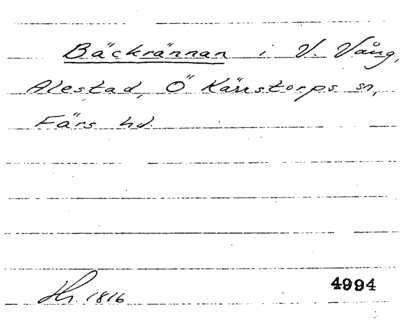 Bäckrännan i V. Vång,
Alestad, Ö Kärrstorps sn,
Färs hd.
Hr. 1816
4994